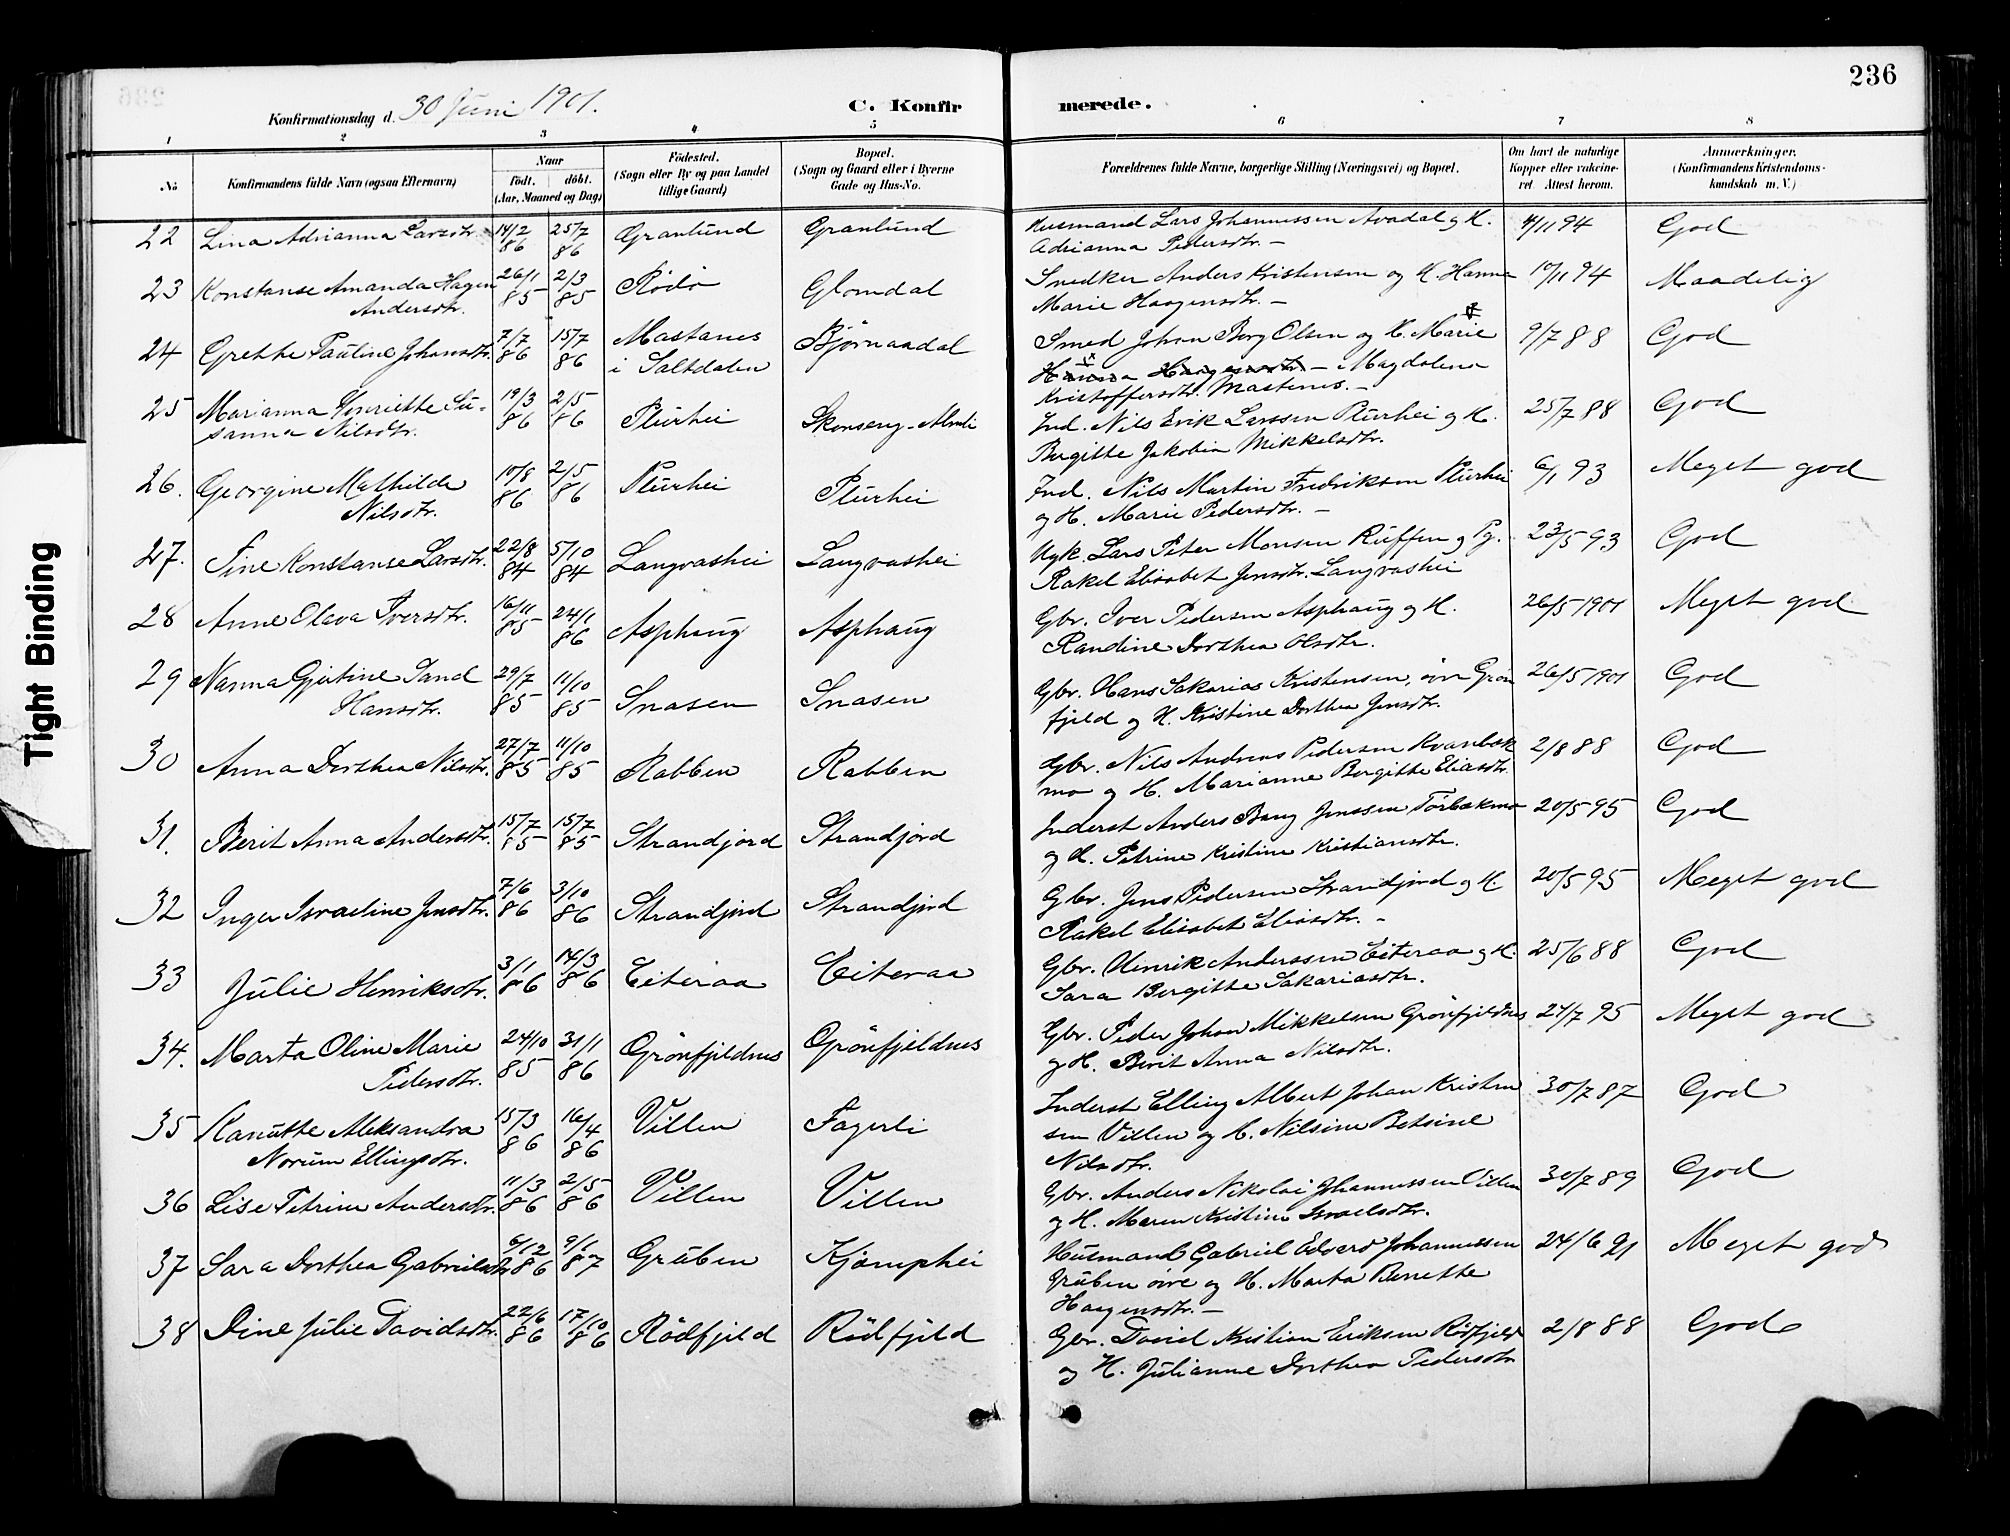 236
Konfirmationsdag d. 30 Juni 1901.
C. Konfirmerede.
1 2 3 4 5 6 7 8
No
Konfirmandens fulde Navn (ogsaa Efternavn)
Naar
Födt. döbt.
(Aar, Maaned og Dag)
Födested.
(Sogn eller By og paa Landet
tillige Gaard)
Bopæl.
(Sogn og Gaard eller i Byerne
Gade og Hus-No.
Forældrenes fulde Navne, borgerlige Stilling (Næringsvei) og Bopæl.
Om havt de naturlige
Kopper eller vakcine-
ret. Attest herom.
Anmærkninger.
(Konfirmandens Kristendoms-
kundskab m. V.)
22 Lina Adrianna Larsdtr. 14/2 86 25/7 86 Granlund Granlund Husmand Lars Johannessen Avadal og H. 4/11 94 God
Adrianna Pedersdtr. –
23 Konstanse Amanda Hagen 26/1 85 2/3 85 Rödö Glomdal Snedker Anders Kristensen og H. Hanna 10/11 94 Maadelig
Andersdtr. Marie Haagensdtr. –
24 Grethe Pauline Johansdtr. 7/7 86 15/7 86 Mastanes Bjørnaadal Smed Johan Berg Olsen og H. Marie 9/7 88 God
i Saltdalen Hanna Haagensdtr. – Magdalena
Kristoffersdtr. Mastenes. –
25 Marianna Henriette Su- 19/3 86 2/5 86 Plurhei Skonseng-Almli Ind. Nils Erik Larssen Plurhei og H. 25/7 88 God
sanna Nilsdtr. Birgitte Jakobia Mikkelsdtr.
26. Georgine Mathilde 10/8 86 2/5 86 Plurhei Plurhei Ind. Nils Martin Fredriksen Plurhei 6/1 93 Meget god
Nilsdtr. og H. Marie Pedersdtr. –
27. Sine Konstanse Larsdtr. 22/8 84 5/10 84 Langvashei Langvashei Ugk. Lars Peter Monsen Ruffen og Pg. 23/5 93 God
Rakel Elisabet Jensdtr. Langvashei
28 Anne Olava Iversdtr. 16/11 85 24/1 86 Asphaug Asphaug Gbr. Iver Pedersen Asphaug og H. 26/5 1901 Meget god
Randine Dorthea Olsdtr.
29 Nanna Gjertine Sand 29/7 85 11/10 85 Snasen Snasen Gbr. Hans Sakarias Kristensen, övre Grön 26/5 1901 God
Hansdtr. fjeld og H. Kristine Dorthea Jensdtr.
30 Anna Dorthea Nilsdtr. 27/7 85 11/10 85 Rabben Rabben Gbr. Nils Andreas Pedersen Kvanbæk 2/8 88 God
mo og H. Marianne Bergitte Eliasdtr.
31. Berit Anna Andersdtr. 15/7 85 15/7 85 Strandjord Strandjord Inderst Anders Bang Jenssen Törbækmo 20/5 95 God
og H. Petrine Kristine Kristiansdtr.
32 Inger Israeline Jensdtr. 7/6 86 3/10 86 Strandjord Strandjord Gbr. Jens Pedersen Strandjord og H. 20/5 95 Meget god
Rakel Elisabet Eliasdtr. –
33 Julie Henriksdtr. 3/1 86 14/3 86 Eiteraa Eiteraa Gbr. Henrik Anderssen Eiteraa og H. 25/6 88 God
Sara Bergitte Sakariasdtr.
34. Marta Oline Marie 24/10 85 31/1 86 Grönfjeldnes Grönfjeldnes Gbr. Peder Johan Mikkelsen Grönfjeldnes 27/7 95 Meget god
Pedersdtr. og H. Berit Anna Nilsdtr.
35 Kanutte Aleksandra 15/3 86 16/4 86 Villen Fagerli Inderst Elling Albert Johan Kristen 30/7 87 God
Norum Ellingsdtr. sen Villen og H. Nilsine Betsine
Nilsdtr.
36 Lise Petrine Andersdtr. 11/3 86 2/5 86 Villen Villen Gbr. Anders Nikolai Johannessen Villen 30/7 89 God
og H. Maren Kristine Israelsdtr.
37 Sara Dorthea Gabrielsdtr. 6/12 86 9/1 87 Gruben Kjæmphei Husmand Gabriel Edvard Johannessen 24/6 91 Meget god
Gruben övre og H. Marta Benette
Haagensdtr. –
38 Dine Julie Davidsdtr. 22/6 86 17/10 86 Rödfjeld Rödfjeld Gbr. David Kristian Eriksen Rödfjeld 2/8 88 God
og H. Julianne Dorthea Pedersdtr
Tight Binding